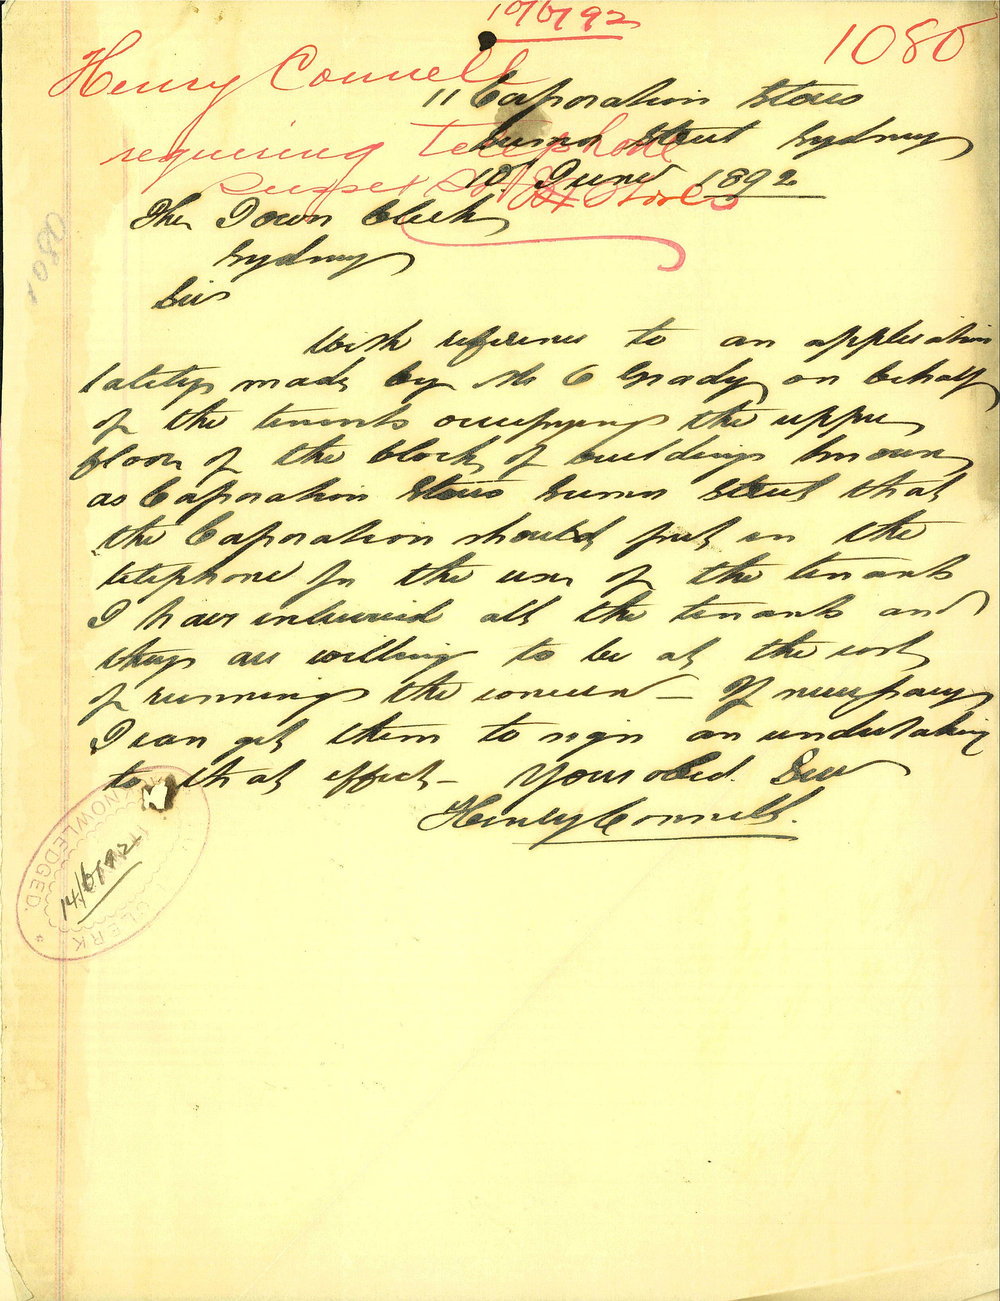 10/6/92
1080
Henry Connell
requiring telephone
Sussex St Stores
11 Corporation Stores
Street Sydney
10 June 1892
The Town Clerk
Sydney
Sir
With reference to an application
lately made by Mr C Grady on behalf
of the tenants occupying the upper
floor of the block of buildings known
as Corporation Stores Street that
the Corporation should put in the
telephone for the use of the tenants
I have interviewed all the tenants and
they are willing to be at the cost
of running the concern – If necessary
I can get them to sign an undertaking
to that effect – Your obed. Serv
Henry Connell.
CLERK
ACKNOWLEDGED.
14/6/92
1080